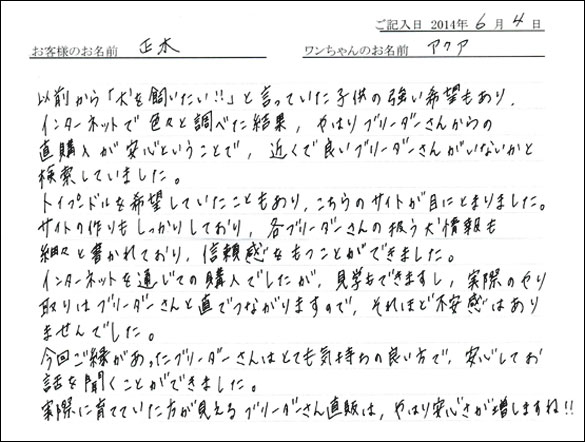 ご記入日 2014年 6 月 4 日
お客様のお名前 正木 ワンちゃんのお名前 アクア
以前から「犬を飼いたい!!」と言っていた子供の強い希望もあり、
インターネットで色々と調べた結果、やはりブリーダーさんからの
直購入が安心ということで、近くで良いブリーダーさんがいないかと
検索していました。
トイプードルを希望していたこともあり、こちらのサイトが目にとまりました。
サイトの作りもしっかりしており、各ブリーダーさんの扱う犬情報も
細々と書かれており、信頼感をもつことができました。
インターネットを通じての購入でしたが、見学もできますし、実際のやり
取りはブリーダーさんと直でつながりますので、それほど不安感はあり
ませんでした。
今回ご縁があったブリーダーさんはとても気持ちの良い方で、安心してお
話を聞くことができました。
実際に育てていた方が見えるブリーダーさん直販は、やはり安心さが増しますね!!